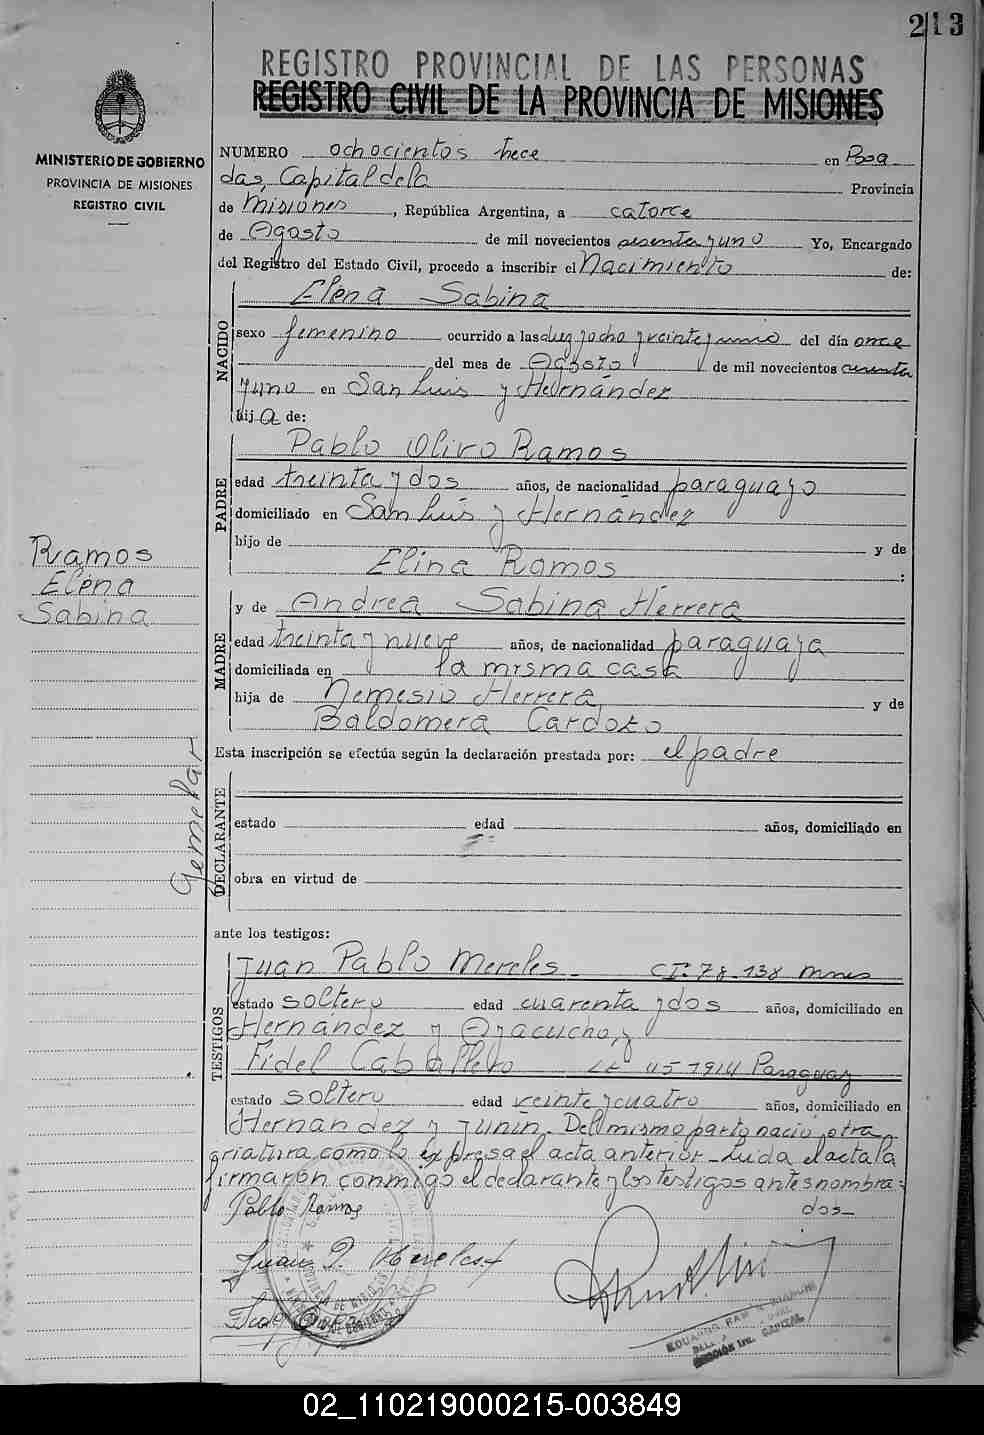 213
REGISTRO PROVINCIAL DE LAS PERSONAS
REGISTRO CIVIL DE LA PROVINCIA DE MISIONES
MINISTERIO DE GOBIERNO
PROVINCIA DE MISIONES
REGISTRO CIVIL
NUMERO ochocientos trece en Posa
das, Capital de la Provincia
de Misiones, República Argentina, a catorce
de Agosto de mil novecientos sesenta y uno Yo, Encargado
del Registro del Estado Civil, procedo a inscribir el Nacimiento de:
NACIDO
Elena Sabina
sexo femenino ocurrido a las diez y ocho y veinte y uno del día once
del mes de Agosto de mil novecientos sesenta
y uno en San Luis y Hernández
hija de:
PADRE
Pablo Olivo Ramos
edad treinta y dos años, de nacionalidad paraguayo
domiciliado en San Luis y Hernández
hijo de y de
Elina Ramos :
Ramos
Elena
Sabina
MADRE
y de Andrea Sabina Herrera
edad treinta y nueve años, de nacionalidad paraguaya
domiciliada en la misma casa
hija de Nemesio Herrera y de
Baldomera Cardozo
Esta inscripción se efectúa según la declaración prestada por: el padre
Gemelar
DECLARANTE
estado edad años, domiciliado en
obra en virtud de
ante los testigos:
TESTIGOS
Juan Pablo Mereles - CI. 78.138 Mnes
estado soltero edad cuarenta y dos años, domiciliado en
Hernández y Ayacucho, y
Fidel Caballero 45 1914 Paraguay
estado soltero edad veinte y cuatro años, domiciliado en
Hernandez y Junín. Del mismo parto nació otra
criatura como lo expresa el acta anterior - Leida el acta la
firmaron conmigo el declarante y los testigos antes nombra=
dos_
Pablo Ramos
Juan P. Mereles
EDUARDO
CAPITAL
02_110219000215-003849